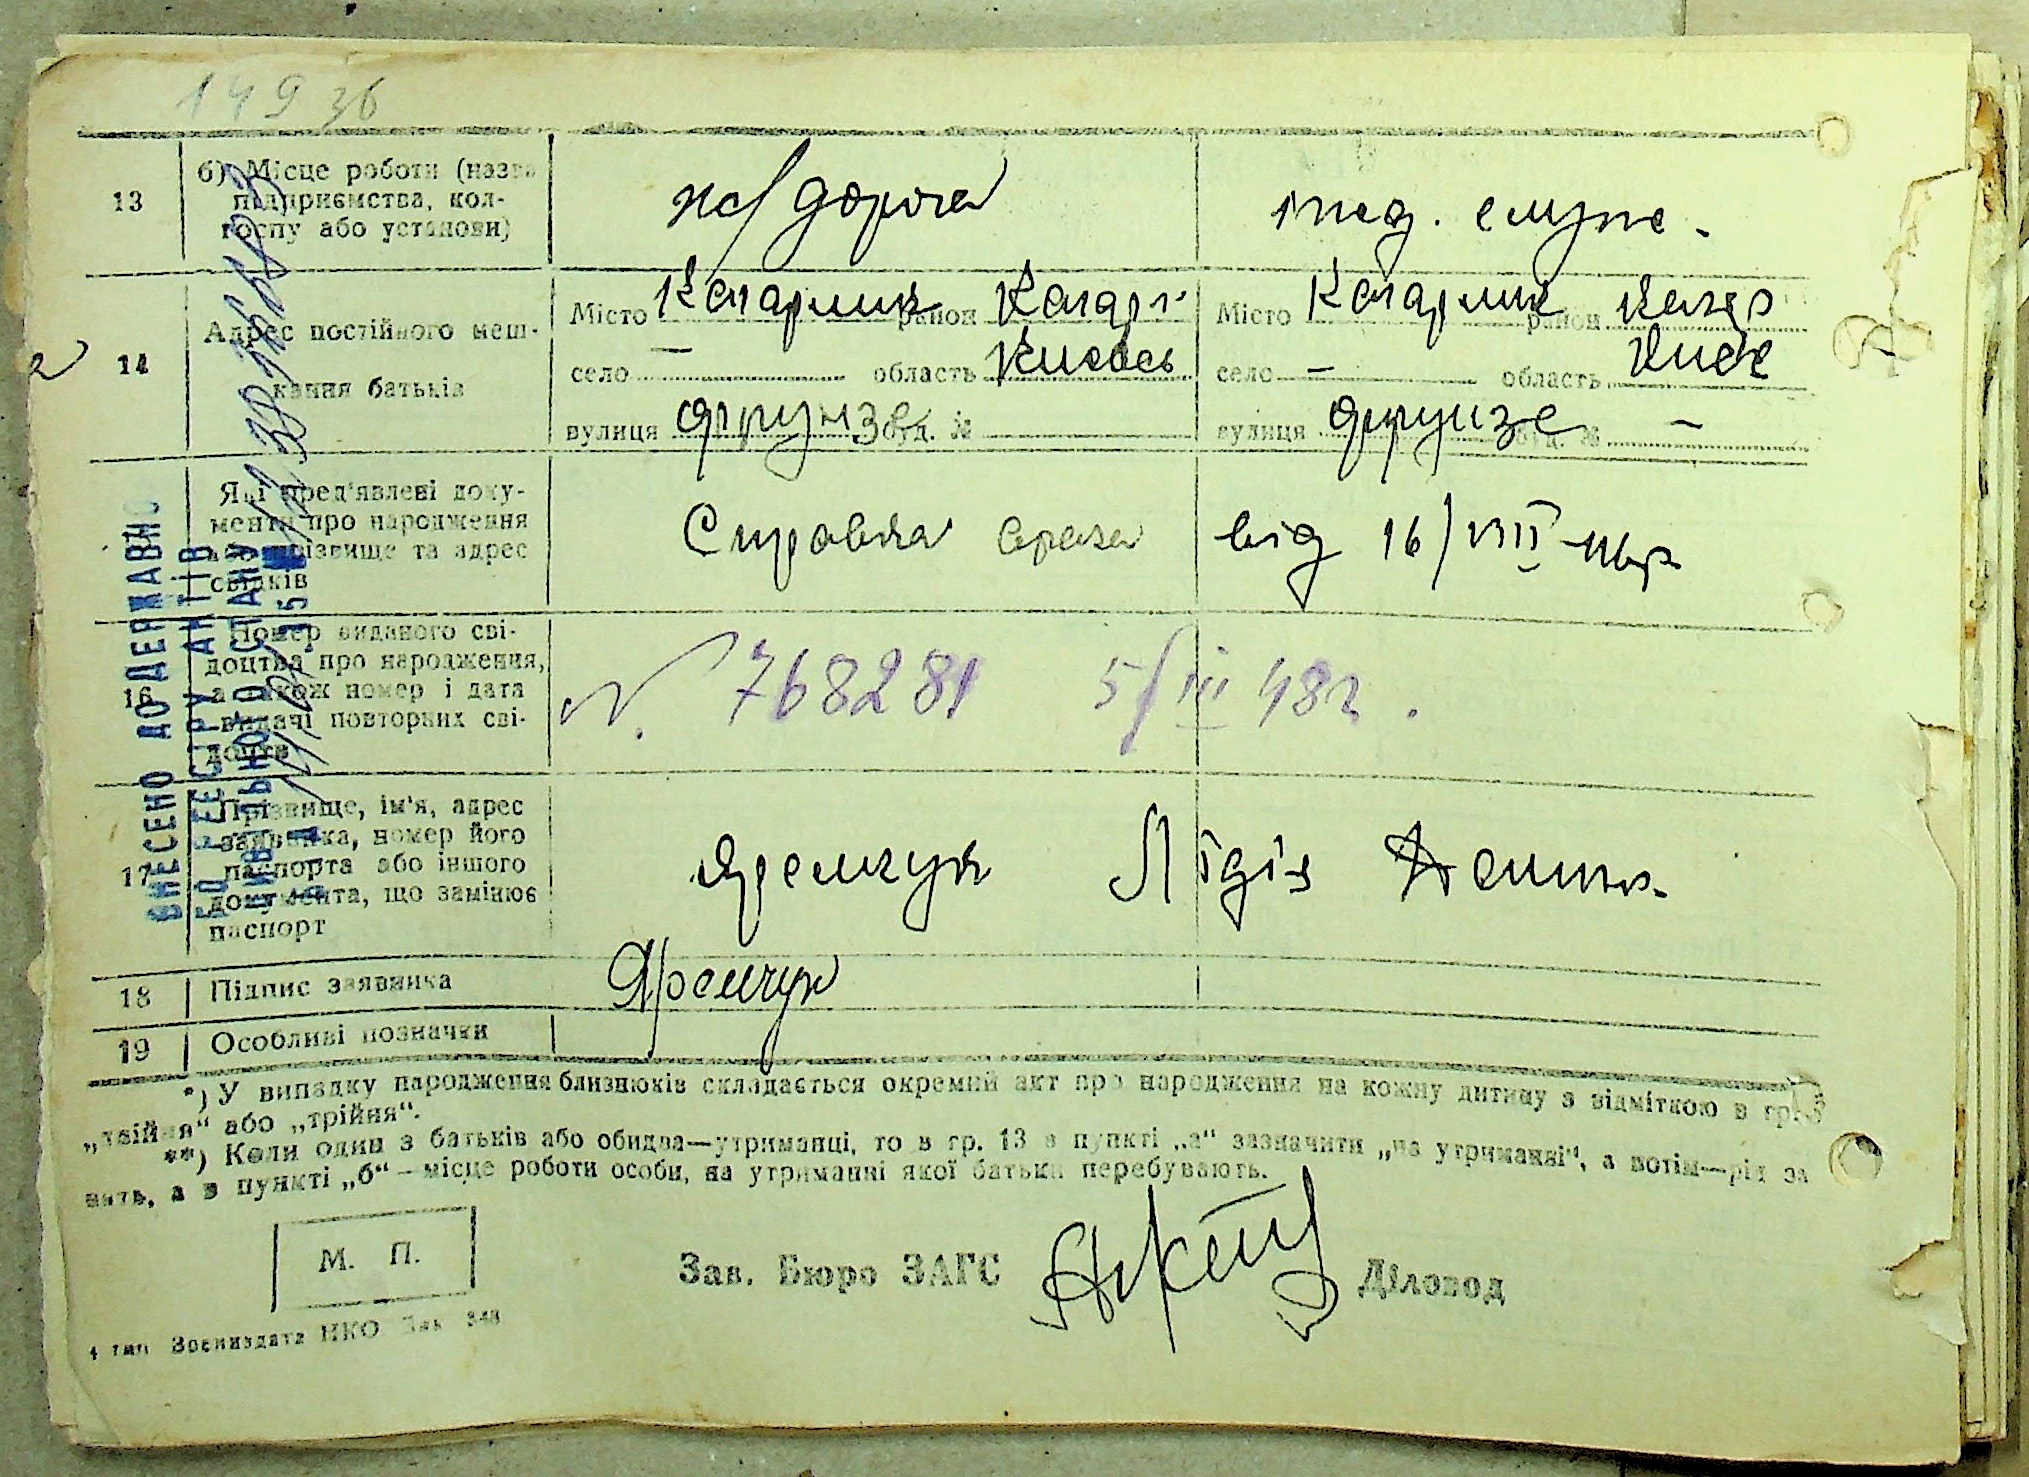 149 зб
13
б) Місце роботи (назва
підприємства, кол-
госпу або установи)
14
Адрес постійного меш-
кання батьків
Місто Кагарлик район Кагарл
село — область Київськ
вулиця Фрунзе буд. №
Місто Кагарлик район Кагар
село — область Київ
вулиця Фрунзе буд. № —
Які пред'явлені доку-
менти про народження
або прізвище та адрес
свідків
Справка врача від 16/VIII
16
Номер виданого сві-
доцтва про народження,
а також номер і дата
видачі повторних сві-
доцтв
N. 768281 5/III 48г.
17
Прізвище, ім'я, адрес
заявника, номер його
паспорта або іншого
документа, що замінює
паспорт
Яремчук Лідія
18
Підпис заявника
Яремчук
19
Особливі позначки
*) У випадку народження близнюків складається окремий акт про народження на кожну дитину з відміткою в гр.
„двійня“ або „трійня“.
**) Коли один з батьків або обидва—утриманці, то в гр. 13 в пункті „а“ зазначити „на утриманні“, а потім—рід за
нять, а в пункті „б“ – місце роботи особи, на утриманні якої батьки перебувають.
М. П.
Зав. Бюро ЗАГС
Діловод
4 тип Воениздата НКО Зак 348
ВНЕСЕНО ДО ДЕРЖАВНОГО
РЕЄСТРУ АКТІВ
ЦИВІЛЬНОГО СТАНУ